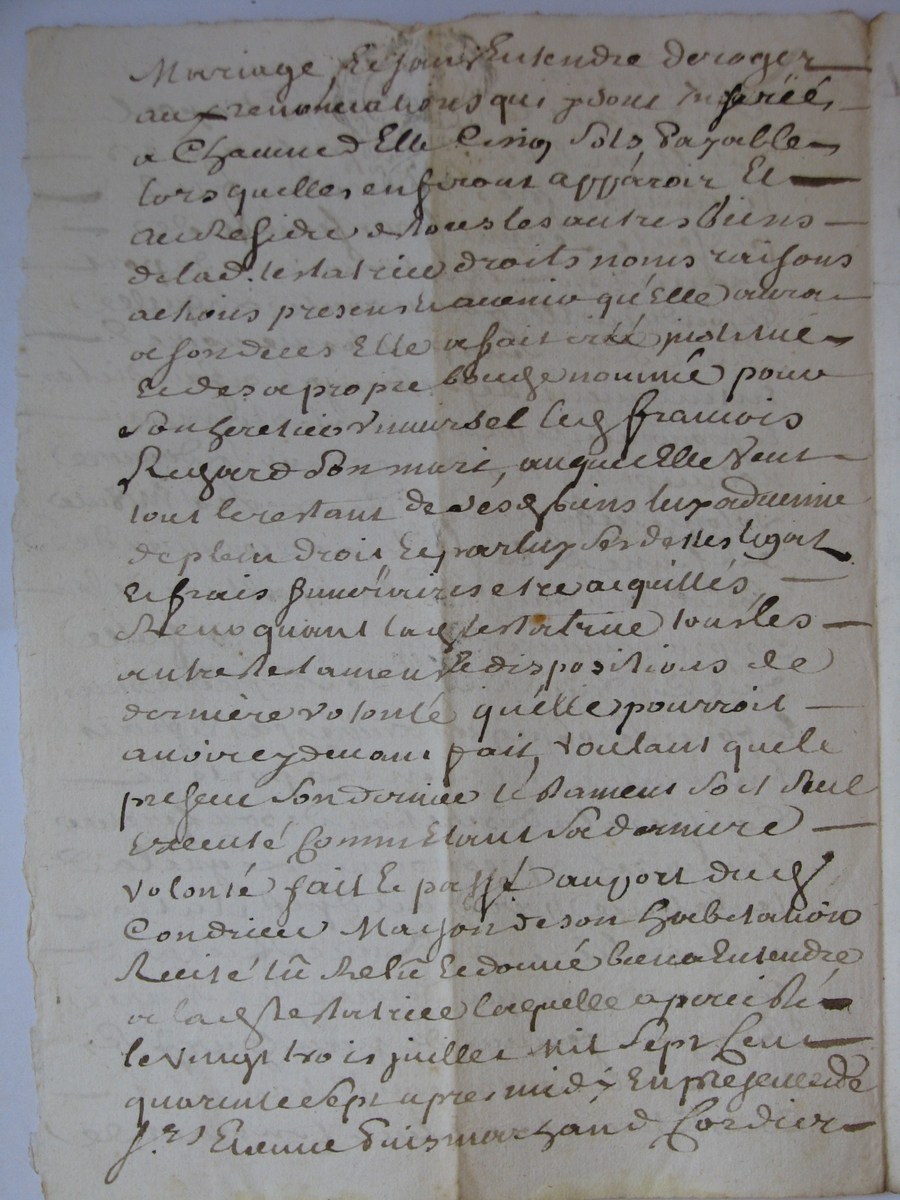 Mariage, Et sans Entendre deroger
aux renonciations qui y sont inserées,
a Chacune d'Elle Cinq sols payables
lors quelles en feront apparoir Et
au Residu de tous les autres biens
de lad. testatrice droits noms raisons
actions presens Et avenir qu'Elle aura
a son deces Elle a fait institué
Et de sa propre bouche nommé pour
son heretier universel led françois
Rigard son mari, auquel Elle veut
tout le restant de ses d biens luy advenir
de plein droit Et par luy ses dettes legat
Et frais funeraires etre acquittés,
Revoquant lad testatrice tous les
autres testament Et dispositions de
derniere volonté qu'elle pourroit
avoir cy devant fait, voulant que le
present son dernier testament soit seul
executé Comme Etant sa derniere
volonté fait Et passé au port dud
Condrieu Maison de son habitation
Recité lû Relû Et donné bien a Entendre
a lad testatrice laquelle a persisté
le vingt trois juillet mil sept Cent
quarente sept apres midy En presence de
srs Etienne Puis marchand Cordier